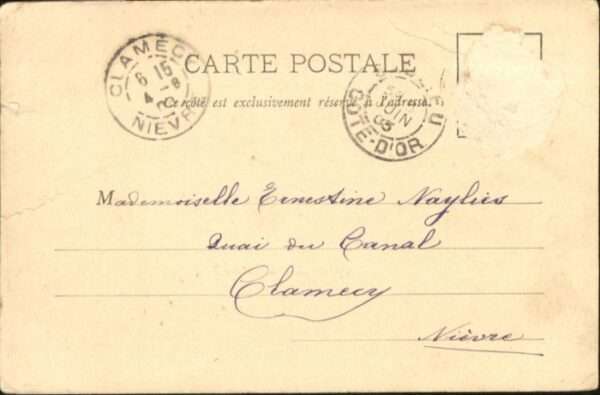 CARTE POSTALE
Ce côté est exclusivement réservé à l'adresse.
CLAMECY
6 15
4 - 8
NIÈVRE
JUIN
03
COTE-D'OR
Mademoiselle Ernestine Naylies
Quai du Canal
Clamecy
Nièvre